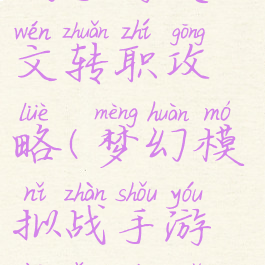 wén zhuǎn zhí gōng
文转职攻
lüè mèng huàn mó
略(梦幻模
nǐ zhàn shǒu yóu
拟战手游